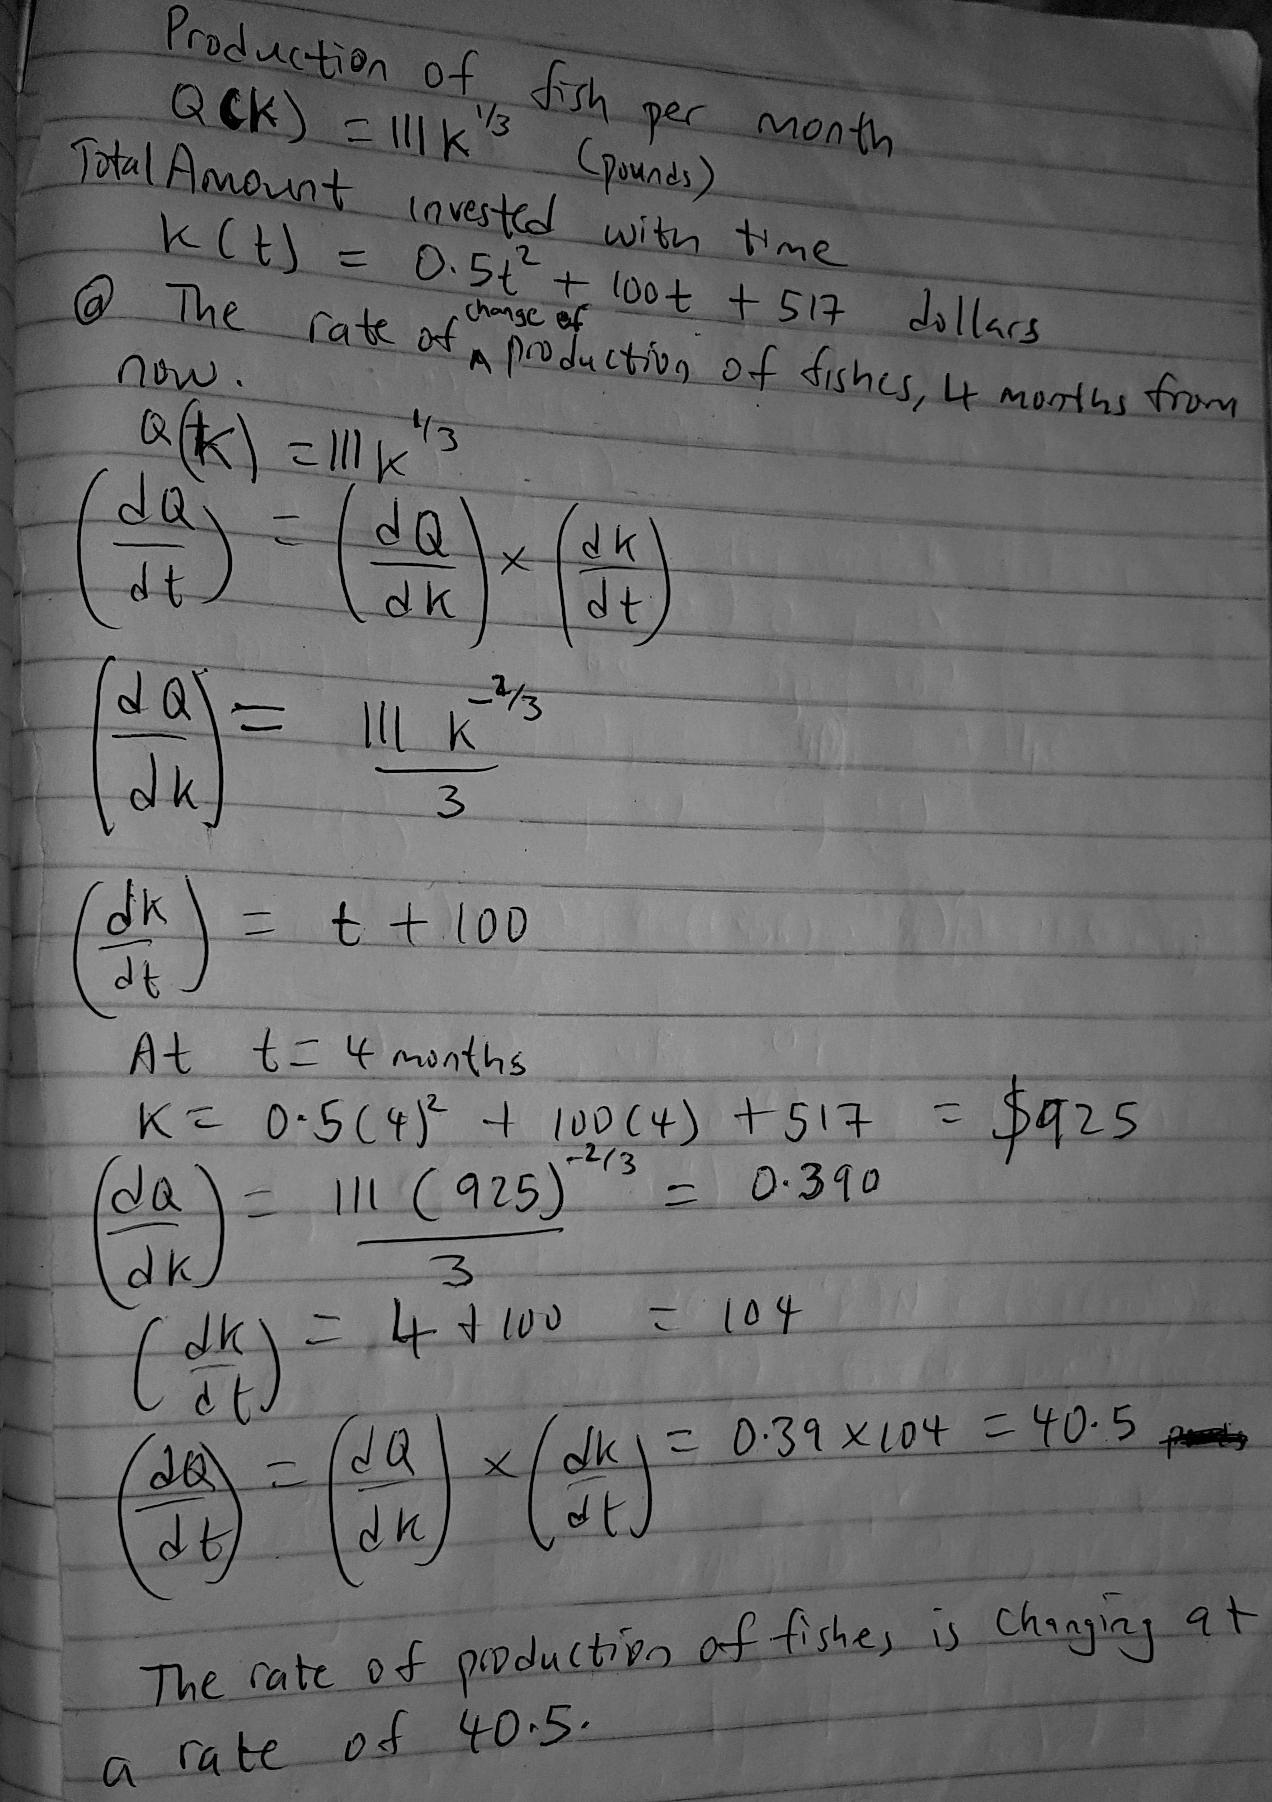 Production of fish per month
Q(K) = 111K^1/3 (pounds)
Total Amount invested with time
K(t) = 0.5t² + 100t + 517 dollars
ⓐ The rate of change of production of fishes, 4 months from
now.
Q(K) = 111K^1/3
(dQ/dt) = (dQ/dK) × (dK/dt)
(dQ/dK) = 111 K^-2/3 / 3
(dK/dt) = t + 100
At t = 4 months
K = 0.5(4)² + 100(4) + 517 = $925
(dQ/dK) = 111 (925)^-2/3 / 3 = 0.390
(dK/dt) = 4 + 100 = 104
(dQ/dt) = (dQ/dK) × (dK/dt) = 0.39 × 104 = 40.5
The rate of production of fishes is changing at
a rate of 40.5.